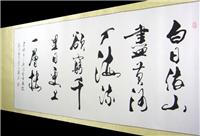 白日依山
盡黄河
入海流
欲窮千
里目更上
一層樓